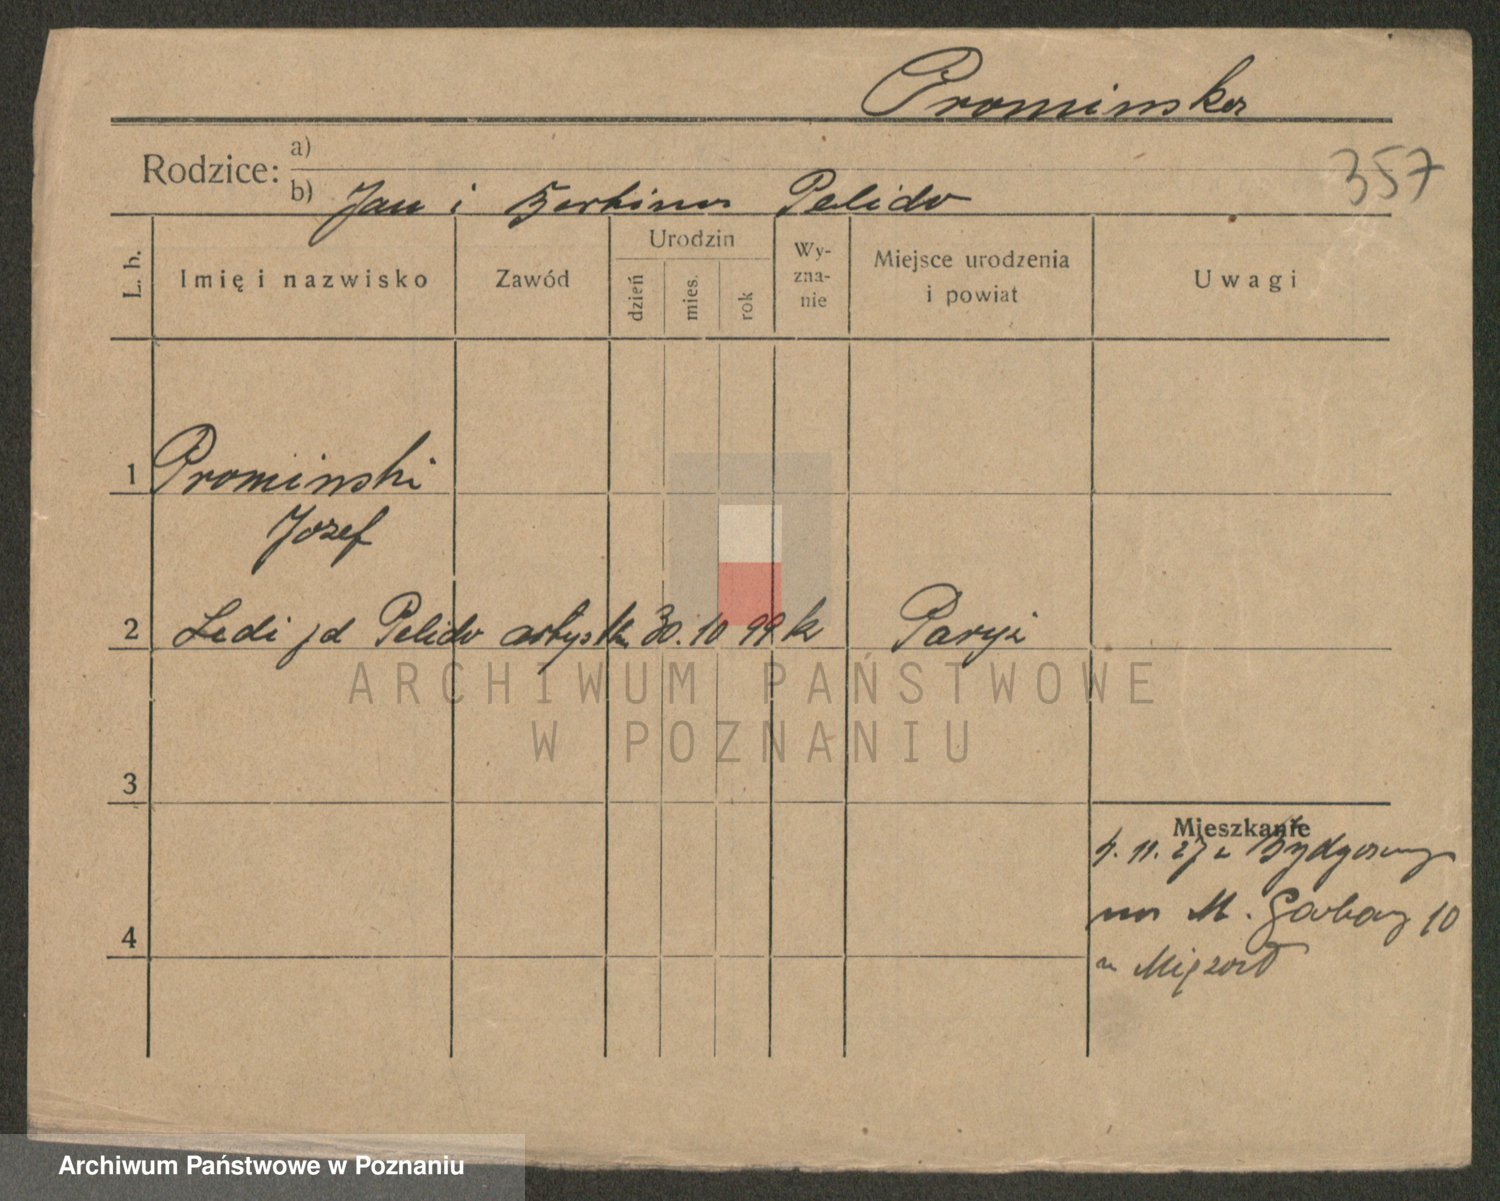 Prominska
Rodzice: a)
357
b) Jan i Pelido
L. b.
Imię i nazwisko
Zawód
Urodzin
dzień
mies.
rok
Wy-
zna-
nie
Miejsce urodzenia
i powiat
Uwagi
1 Prominski
Jozef
2 Ledi jd Pelido artystka 30. 10 99 k Paryż
ARCHIWUM PAŃSTWOWE
W POZNANIU
3
Mieszkanie
11. 27 z Bydgoszczy
na M. Garbary 10
4
u
Archiwum Państwowe w Poznaniu